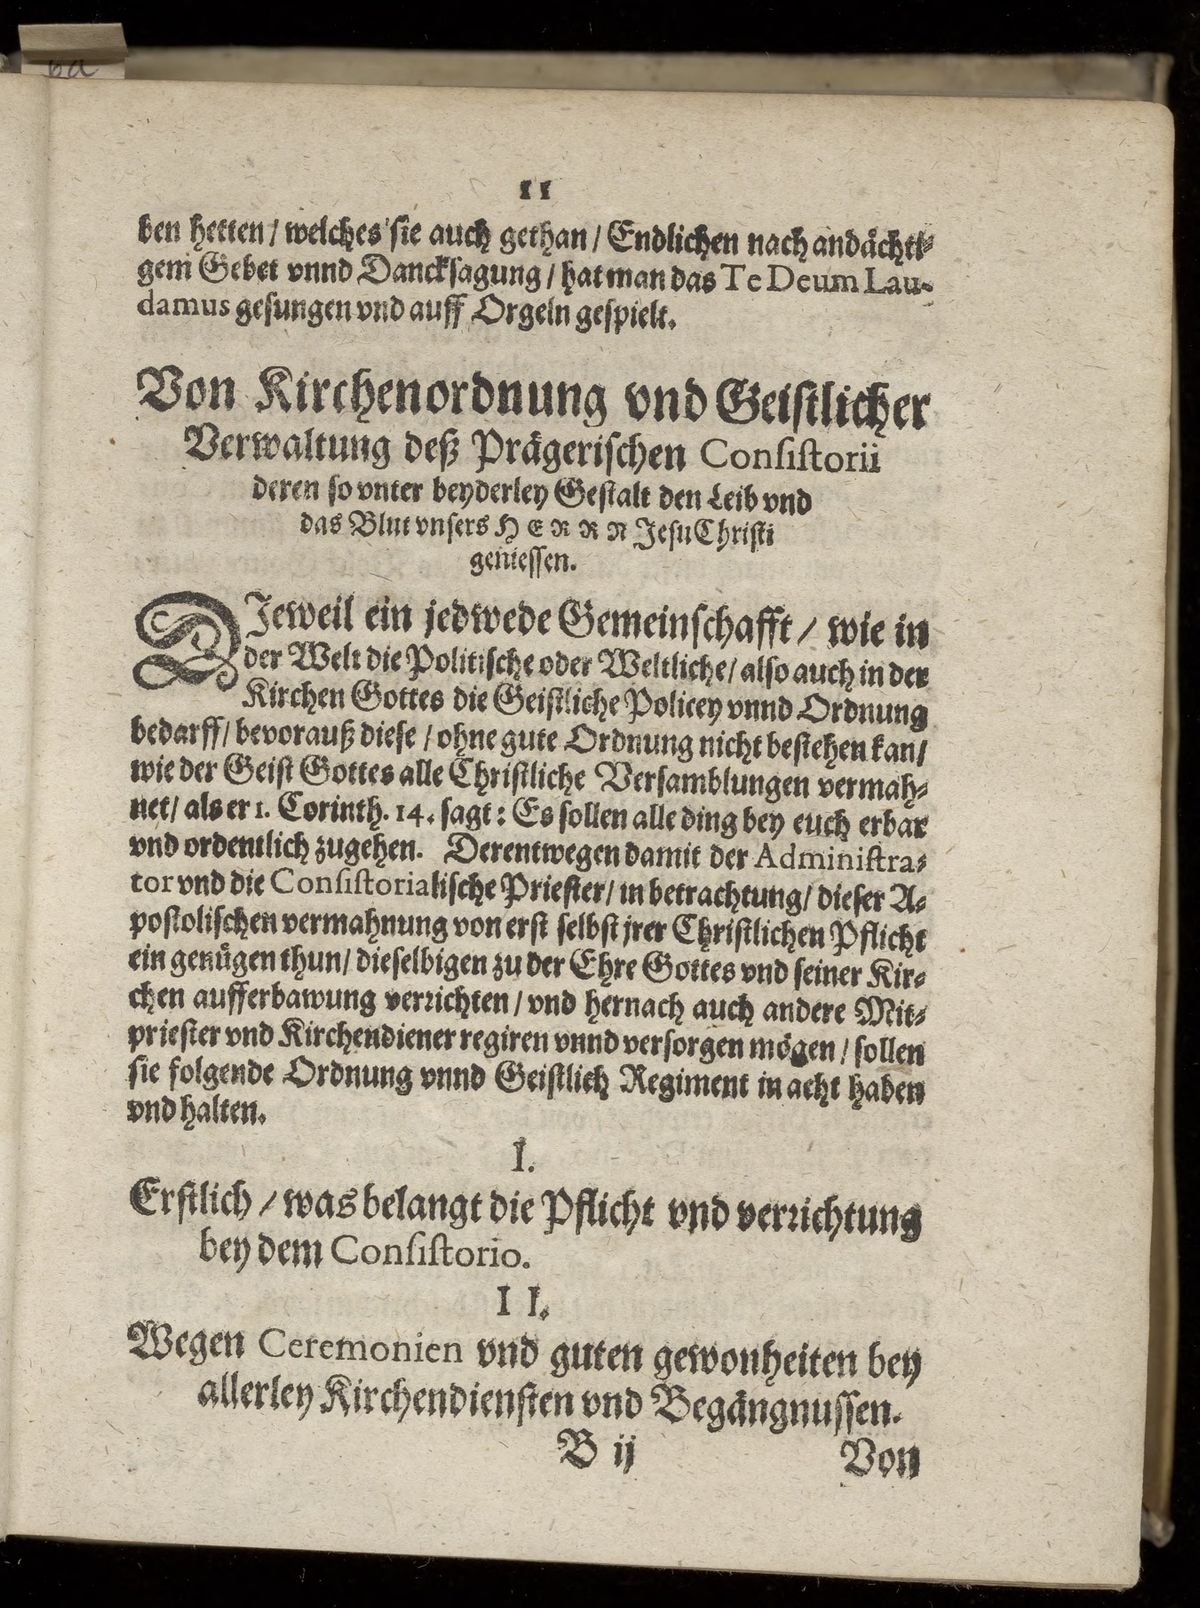 11
ben hetten / welches sie auch gethan / Endlichen nach andächti-
gem Gebet vnnd Dancksagung / hat man das Te Deum Lau-
damus gesungen vnd auff Orgeln gespielt.
Von Kirchenordnung vnd Geistlicher
Verwaltung deß Prägerischen Consistorii
deren so vnter beyderley Gestalt den Leib vnd
das Blut vnsers HERRN Jesu Christi
geniessen.
DJeweil ein jedwede Gemeinschafft / wie in
der Welt die Politische oder Weltliche / also auch in der
Kirchen Gottes die Geistliche Policey vnnd Ordnung
bedarff / bevorauß diese / ohne gute Ordnung nicht bestehen kan /
wie der Geist Gottes alle Christliche Versamblungen vermah-
net / als er 1. Corinth. 14. sagt: Es sollen alle ding bey euch erbar
vnd ordentlich zugehen. Derentwegen damit der Administra-
tor vnd die Consistorialische Priester / in betrachtung / dieser A-
postolischen vermahnung von erst selbst jrer Christlichen Pflicht
ein genügen thun / dieselbigen zu der Ehre Gottes vnd seiner Kir-
chen aufferbawung verrichten / vnd hernach auch andere Mit-
priester vnd Kirchendiener regiren vnnd versorgen mögen / sollen
sie folgende Ordnung vnnd Geistlich Regiment in acht haben
vnd halten.
I.
Erstlich / was belangt die Pflicht vnd verrichtung
bey dem Consistorio.
II.
Wegen Ceremonien vnd guten gewonheiten bey
allerley Kirchendiensten vnd Begängnussen.
B ij Von